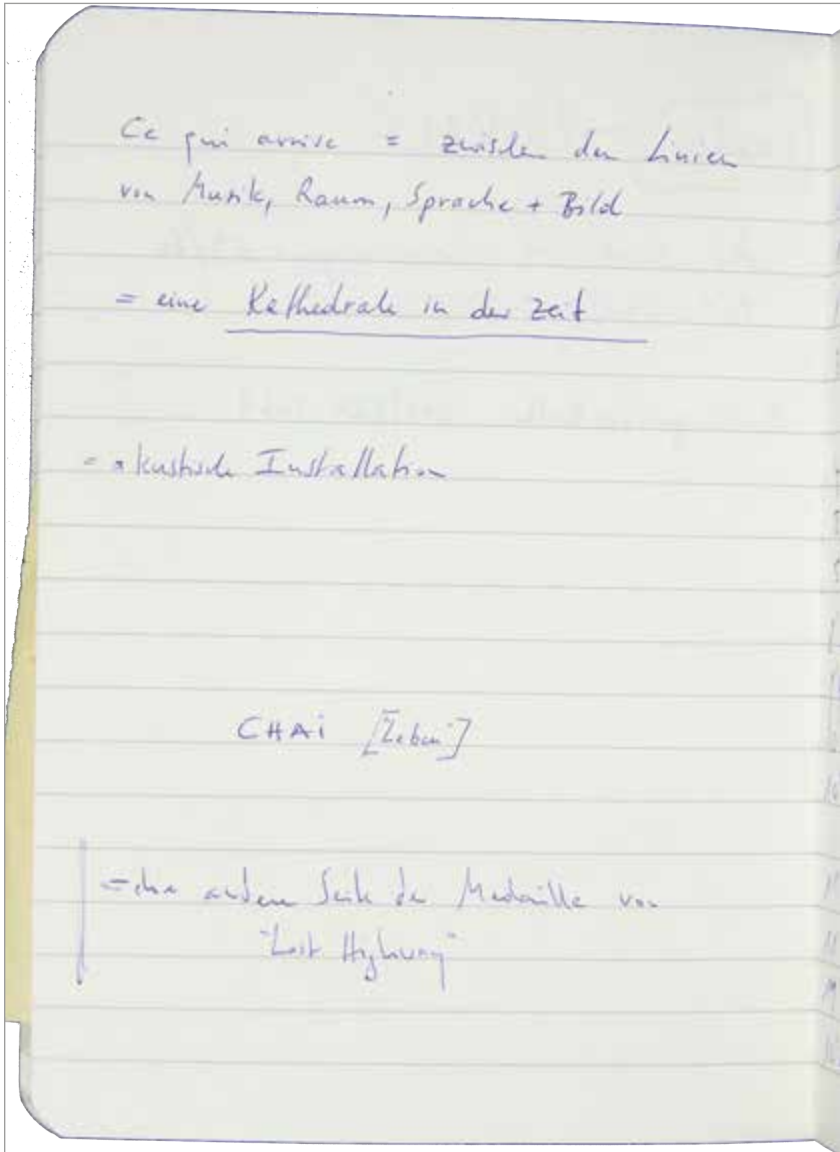 Ce qui arrive = zwischen den Linien
von Musik, Raum, Sprache + Bild
= eine Kathedrale in der Zeit
= akustische Installation
CHAi [Leben]
= die andere Seite der Medaille von
"Lost Highway"